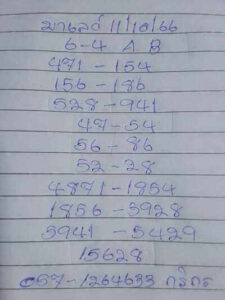 มาเลย์ 11/10/66
6-4 A B
471 - 154
156 - 186
528 - 941
47 - 54
56 - 86
52 - 28
4871 - 1854
1856 - 3928
5941 - 5429
15628
057-1264633